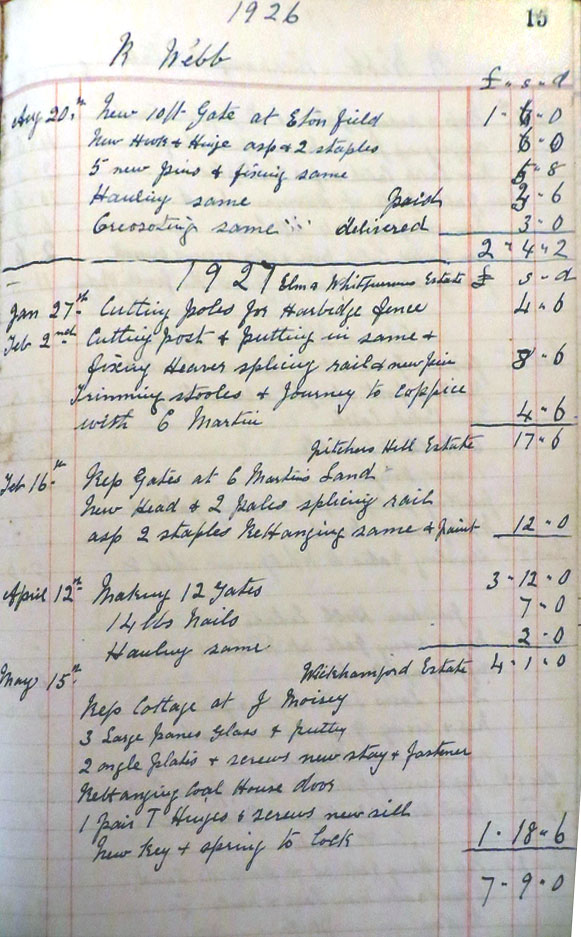 1926
15
R Webb
£ " s " d
Aug 20th New 10ft Gate at Eton field 1 - 6 - 0
New Hook & Hinge asp & 2 staples 6 - 0
5 new pins & fixing same 5 " 8
Hauling same paid 3 - 6
Creosoting same delivered 3 - 0
2 " 4 " 2
1927 Elms Estate £ s - d
Jan 27th Cutting poles for Harbidge fence 4 - 6
Feb 2nd Cutting post & putting in same &
fixing Heaver splicing rail & new pin 8 - 6
Trimming stooles & Journey to Coppice
with E Martin 4 - 6
Pitchers Hill Estate 17 - 6
Feb 16th Rep Gates at E Martins Land
New Head & 2 pales splicing rail
asp 2 staples ReHanging same & paint 12 - 0
April 12th Making 12 Gates 3 - 12 - 0
14 lbs Nails 7 - 0
Hauling same 2 - 0
Wickhamford Estate 4 - 1 - 0
May 15th
Rep Cottage at J Moisey
3 Large panes Glass & putty
2 angle plates & screws new stay & fastener
ReHanging Coal House door
1 pair T Hinges & screws new sill
New Key & spring to lock 1 - 18 - 6
7 - 9 - 0